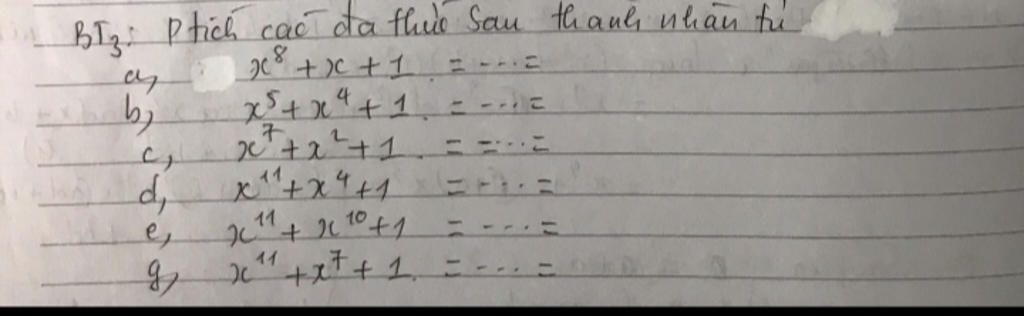 BT3: Ptích các đa thức sau thành nhân tử
a, x⁸ + x + 1 = ---- =
b, x⁵ + x⁴ + 1. = ---- =
c, x⁷ + x² + 1. = =--- =
d, x¹¹ + x⁴ + 1 = ---- =
e, x¹¹ + x¹⁰ + 1 = ---- =
g, x¹¹ + x⁷ + 1. = ---- =